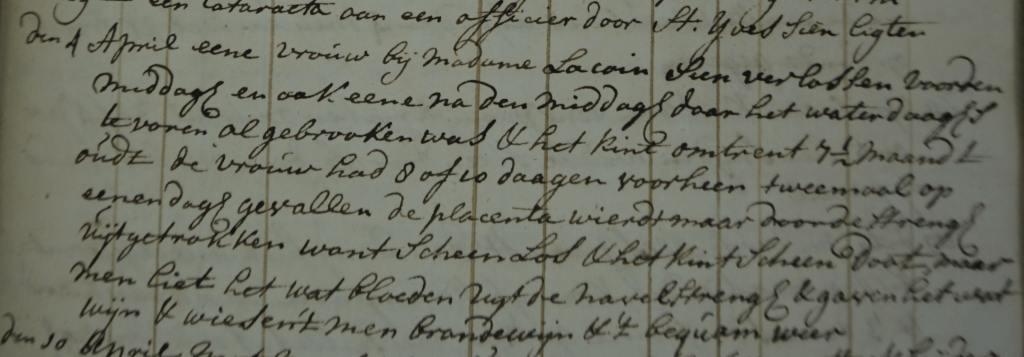 een cataracta aan een officier door St. Yves sien ligten
den 4 April eene vrouw bij madame Lacoin sien verlossen voorden
middagh en ook eene na den middagh daar het water daaghs
te voren al gebrooken was & het kint omtrent 7½ maandt
oúdt de vroúw had 8 of 10 daagen voorheen tweemaal op
eenen dagh gevallen de placenta wierdt maar doordestrengh
úijtgetrokken want scheen los & het kint scheen doot, maar
men liet het wat bloeden uijt de navelstrengh & gaven het wat
wijn & wiesen't men brandewijn & 't bequam weer
den 10 April